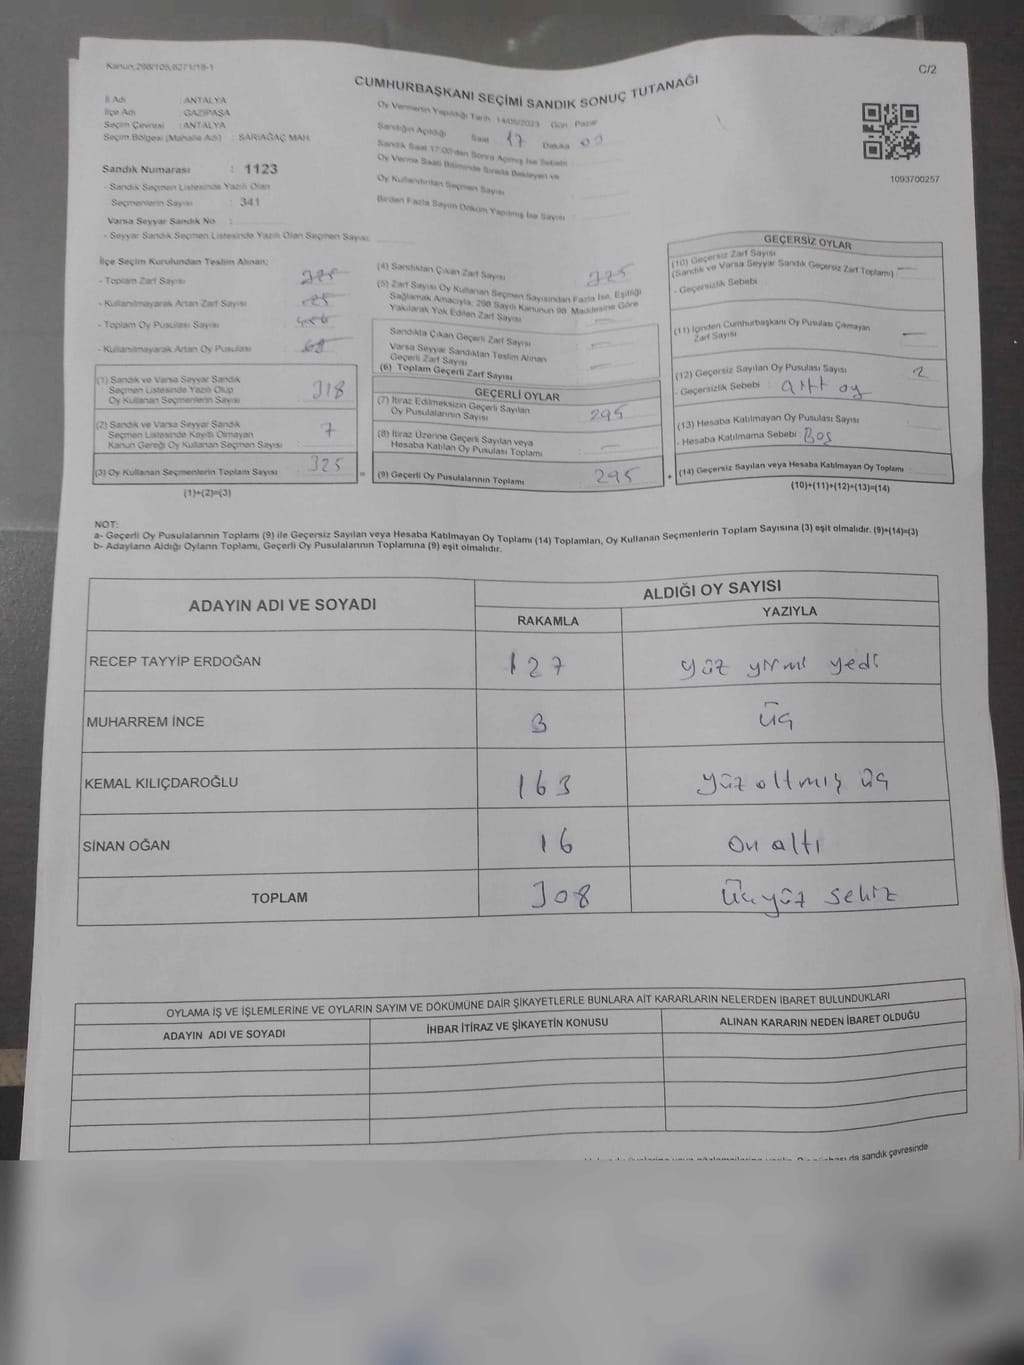 Kanun,298/105,6271/18-1
C/2
CUMHURBAŞKANI SEÇİMİ SANDIK SONUÇ TUTANAĞI
İl Adı : ANTALYA
İlçe Adı : GAZİPAŞA
Seçim Çevresi : ANTALYA
Seçim Bölgesi (Mahalle Adı) : SARIAĞAÇ MAH.
Sandık Numarası : 1123
- Sandık Seçmen Listesinde Yazılı Olan
Seçmenlerin Sayısı : 341
Varsa Seyyar Sandık No :
- Seyyar Sandık Seçmen Listesinde Yazılı Olan Seçmen Sayısı:
Oy Vermenin Yapıldığı Tarih : 14/05/2023 Gün : Pazar
Sandığın Açıldığı Saat : 17 Dakika : 00
Sandık Saat 17:00'den Sonra Açılmış İse Sebebi :
Oy Verme Saati Bitiminde Sırada Bekleyen ve
Oy Kullandırılan Seçmen Sayısı :
Birden Fazla Sayım Döküm Yapılmış İse Sayısı :
1093700257
İlçe Seçim Kurulundan Teslim Alınan;
- Toplam Zarf Sayısı :
- Kullanılmayarak Artan Zarf Sayısı :
- Toplam Oy Pusulası Sayısı :
- Kullanılmayarak Artan Oy Pusulası :
(1) Sandık ve Varsa Seyyar Sandık
Seçmen Listesinde Yazılı Olup
Oy Kullanan Seçmenlerin Sayısı : 318
(2) Sandık ve Varsa Seyyar Sandık
Seçmen Listesinde Kayıtlı Olmayan
Kanun Gereği Oy Kullanan Seçmen Sayısı : 7
(3) Oy Kullanan Seçmenlerin Toplam Sayısı : 325
(1)+(2)=(3)
(4) Sandıktan Çıkan Zarf Sayısı : 325
(5) Zarf Sayısı Oy Kullanan Seçmen Sayısından Fazla İse, Eşitliği
Sağlamak Amacıyla, 298 Sayılı Kanunun 98. Maddesine Göre
Yakılarak Yok Edilen Zarf Sayısı :
Sandıkta Çıkan Geçerli Zarf Sayısı :
Varsa Seyyar Sandıktan Teslim Alınan
Geçerli Zarf Sayısı :
(6) Toplam Geçerli Zarf Sayısı :
GEÇERLİ OYLAR
(7) İtiraz Edilmeksizin Geçerli Sayılan
Oy Pusulalarının Sayısı : 295
(8) İtiraz Üzerine Geçerli Sayılan veya
Hesaba Katılan Oy Pusulası Toplamı :
= (9) Geçerli Oy Pusulalarının Toplamı : 295
GEÇERSİZ OYLAR
(10) Geçersiz Zarf Sayısı
(Sandık ve Varsa Seyyar Sandık Geçersiz Zarf Toplamı) :
- Geçersizlik Sebebi :
(11) İçinden Cumhurbaşkanı Oy Pusulası Çıkmayan
Zarf Sayısı :
(12) Geçersiz Sayılan Oy Pusulası Sayısı : 2
- Geçersizlik Sebebi :
(13) Hesaba Katılmayan Oy Pusulası Sayısı :
- Hesaba Katılmama Sebebi : Boş
+ (14) Geçersiz Sayılan veya Hesaba Katılmayan Oy Toplamı :
(10)+(11)+(12)+(13)=(14)
NOT:
a- Geçerli Oy Pusulalarının Toplamı (9) ile Geçersiz Sayılan veya Hesaba Katılmayan Oy Toplamı (14) Toplamları, Oy Kullanan Seçmenlerin Toplam Sayısına (3) eşit olmalıdır. (9)+(14)=(3)
b- Adayların Aldığı Oyların Toplamı, Geçerli Oy Pusulalarının Toplamına (9) eşit olmalıdır.
ADAYIN ADI VE SOYADI
ALDIĞI OY SAYISI
RAKAMLA YAZIYLA
RECEP TAYYİP ERDOĞAN 127 yüz yirmi yedi
MUHARREM İNCE 3 üç
KEMAL KILIÇDAROĞLU 163 yüz altmış üç
SİNAN OĞAN 16 on altı
TOPLAM 308 Üçyüz sekiz
OYLAMA İŞ VE İŞLEMLERİNE VE OYLARIN SAYIM VE DÖKÜMÜNE DAİR ŞİKAYETLERLE BUNLARA AİT KARARLARIN NELERDEN İBARET BULUNDUKLARI
ADAYIN ADI VE SOYADI İHBAR İTİRAZ VE ŞİKAYETİN KONUSU ALINAN KARARIN NEDEN İBARET OLDUĞU
da sandık çevresinde